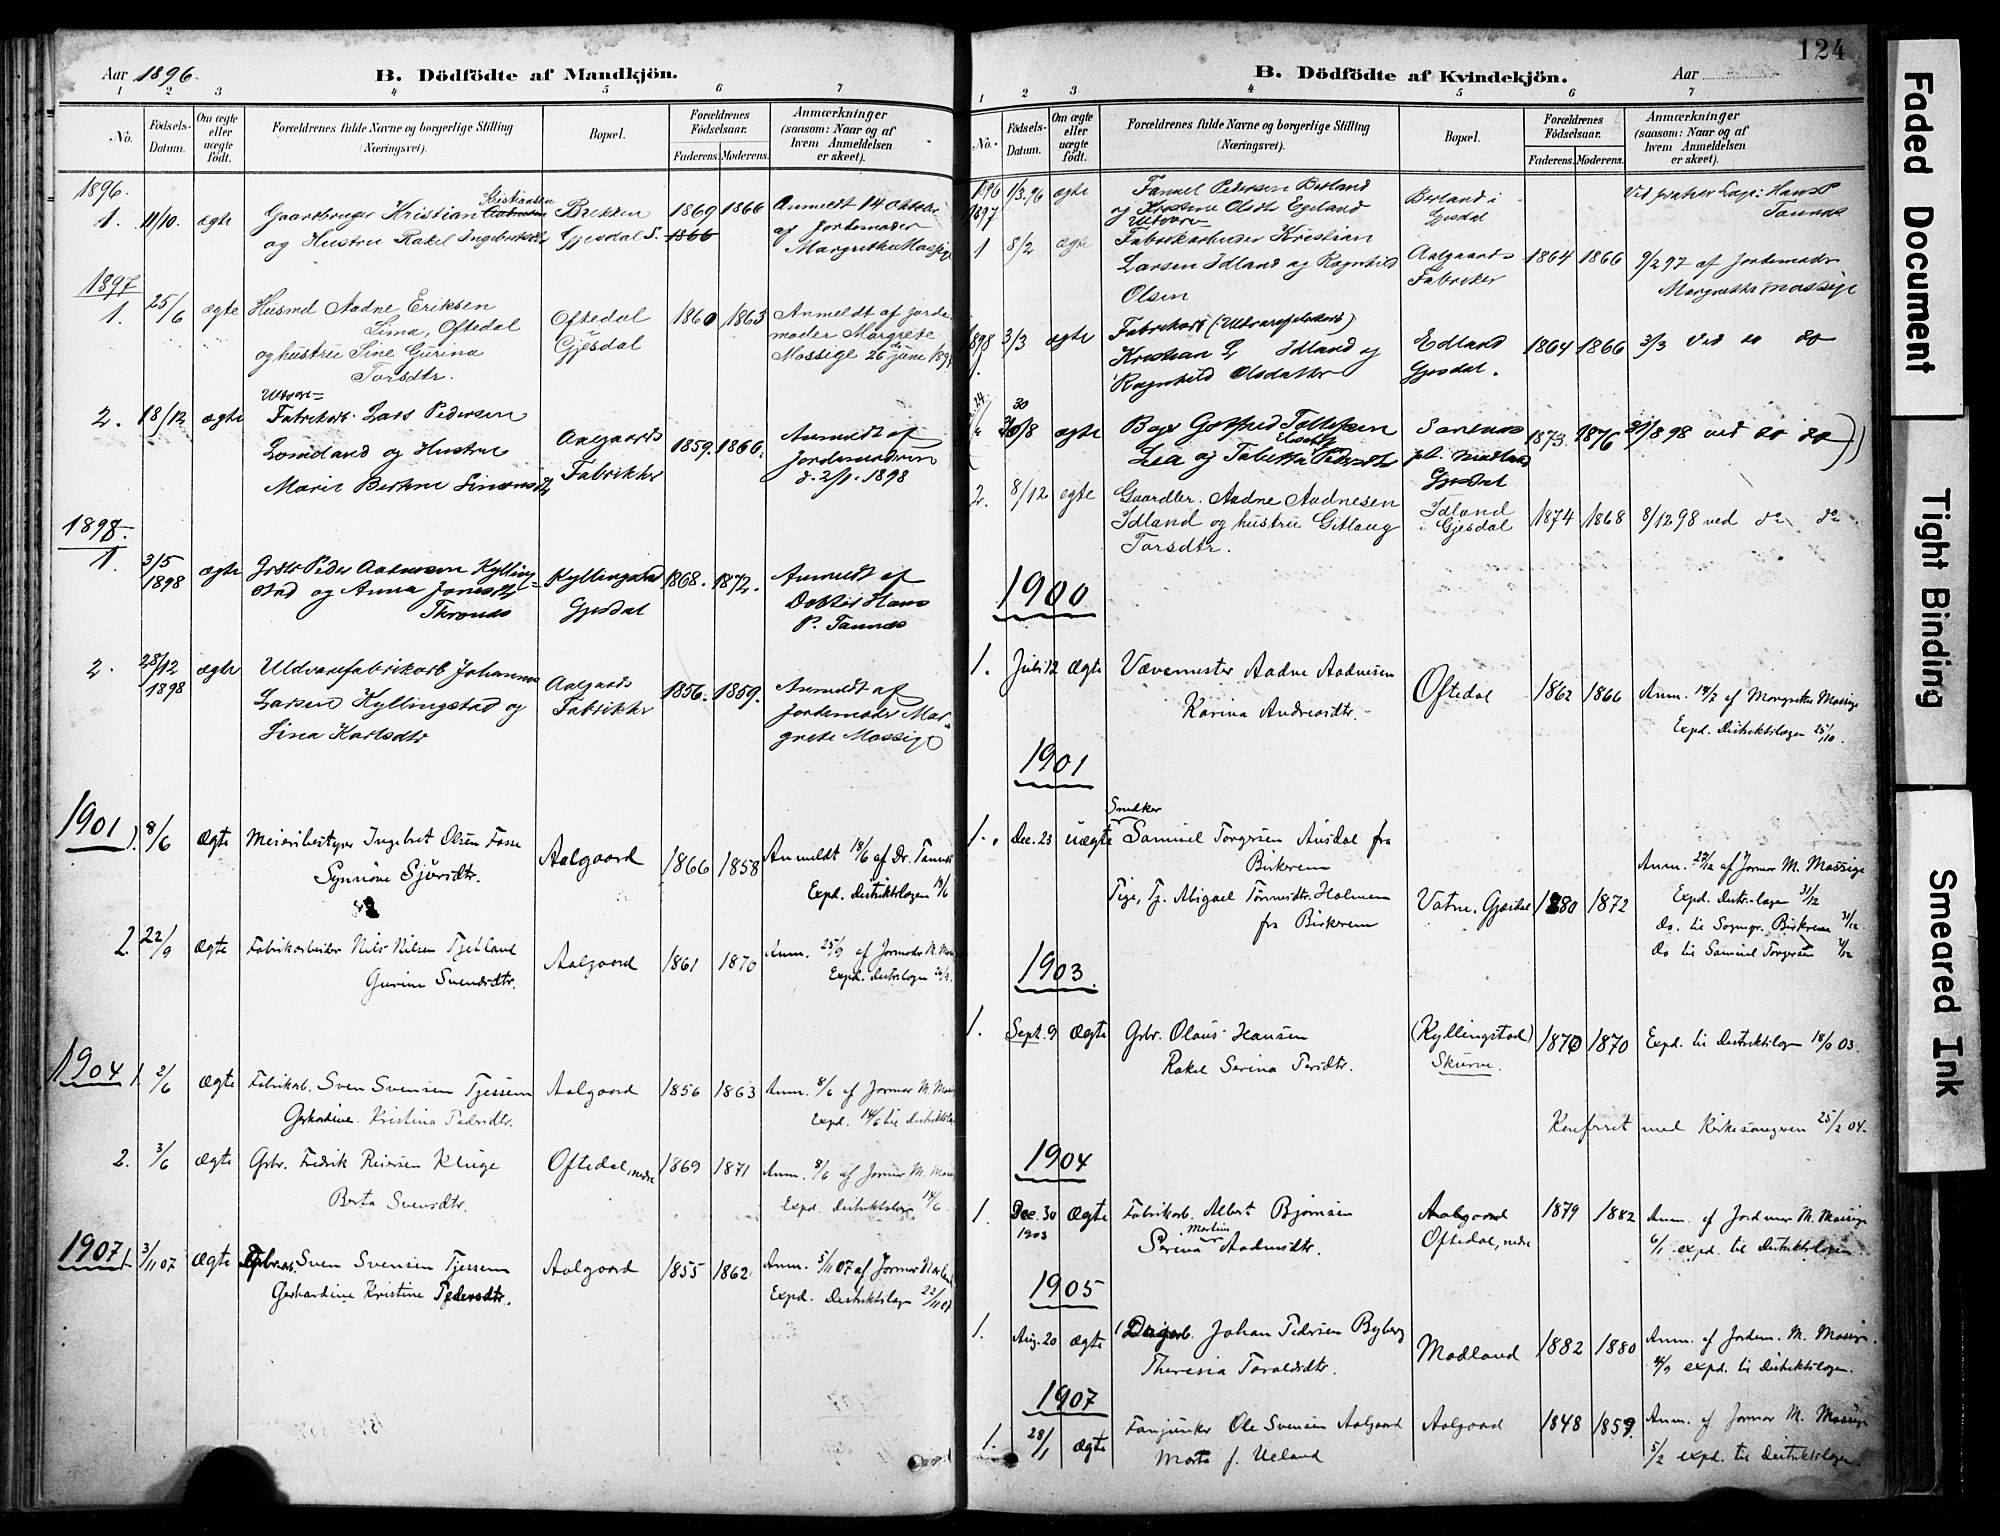 Aar 1896.
B. Dödfödte af Mandkjön.
1 2 3 4 5 6 7
No.
Födsels-Datum.
Om ægte eller uægte födt.
Forældrenes fulde Navne og borgerlige Stilling
(Næringsvei).
Bopæl.
Forældrenes Födselsaar.
Faderens. Moderens.
Anmærkninger
(saasom: Naar og af
hvem Anmeldelsen
er skeet).
1896.
1. 11/10. ægte Gaardbruger Kristian Kristiansen Brekken 1869 1866 Anmeldt 14 Oktober
og Hustru Rakel Ingebrikt Gjesdal S. 1866 af Jordemoder
Margretha Mossige
1897
1. 25/6 ægte Husmd Aadne Eriksen
Lima, Oftedal Oftedal 1860 1863 Anmeldt af Jorde
og hustru Sine Gurina i Gjesdal moder Margrete
Torsdtr. Mossige 26 juni 189
2. 18/12 ægte Fabrikarb. Lars Pedersen
Lomeland og Hustru Aalgaards 1859. 1860. Anmeldt af
Marie Bertine Simonsdtr Fabrikker Jordemoderen
d. 2/1. 1898
1898.
1. 3/5 1898 ægte Peder Aadnesen Kylling= Kyllingstad 1868. 1872. Anmeldt af
stad og Anna Jonesdtr Gjesdal Doktor Hans
P. Tannæs
2. 28/12 1898 ægte Uldvarefabrikarb Johannes
Larsen Kyllingstad og Aalgaards 1856. 1859. Anmeldt af
Sina Karlsdtr Fabrikker Jordemoder Mar
grete Mossige
1901
1. 8/6 ægte Meieribestyrer Ingebret Olsen Fosse Aalgaard 1866 1858 Anmeldt 18/6 af Dr. Tannæs
Synnöve Sjursdtr. Expd. Distriktslægen 19/6
2. 22/9 ægte Fabrikarbeider Nils Nilsen Tjetland Aalgaard 1861 1870 Anm. 25/9 af Jormoder M. Mos
Gurine Svendsdtr. Expd. distrslægen 26/9
1904
1. 2/6 ægte Fabrikarb. Sven Svensen Tjessem Aalgaard 1856 1863 Anm. 8/6 af Jormor M. Moss
Gerhardine Kristina Pedersdtr. Expd. 14/6 til Distriktslæ
2. 3/6 ægte Gbr. Fredrik Reiersen Kluge Oftedal, nedre 1869 1871 Anm. 8/6 af Jormor M. Moss
Berta Svensdtr. Expd. Distriktslægen 14/6
1907
1 3/11 07 ægte Sven Svensen Tjessem Aalgaard 1855 1862 Anm. 5/11 07 af Jormor
Gerhardine Kristine Pedersdtr. Expd. Distriktslægen 22/11 07
124
B. Dödfödte af Kvindekjön.
Aar
1 2 3 4 5 6 7
No.
Födsels-Datum.
Om ægte eller uægte födt.
Forældrenes fulde Navne og borgerlige Stilling
(Næringsvei).
Bopæl.
Forældrenes Födselsaar.
Faderens. Moderens.
Anmærkninger
(saasom: Naar og af
hvem Anmeldelsen
er skeet).
1896 1/3.96 ægte Pedersen Berland Berland i Hans P
og Kristine Olsdtr Egeland Gjesdal Tannæs
1897
1 8/2 ægte Fabrikarbeider Kristian
Larsen Idland og Ragnhild Aalgaards 1864 1866 9/2 97 af Jordemoder
Olsen Fabriker Margretha Mossige
1898 3/3 ægte Fabrikarb (Uldvarefabrikarb)
Kristian L Idland og Edland 1864 1866 3/3 ved do do
Ragnhild Olsdatter Gjesdal.
30/8 ægte Gotfred Tollefsen Sarenas 1873. 1876 31/8 98 ved do do
Lea og Tabetta Pedersdtr pl. Madland
Gjesdal
2. 8/12 ægte Gaardbr. Aadne Aadnesen
Idland og hustru Gitlaug Idland i Gjesdal 1874 1868 8/12 98 ved do do
Torsdtr.
1900
1. Juli 12 ægte Vævemester Aadne Aadnesen Oftedal 1862 1866 Anm. 14/7 af Margrethe Mossige
Karina Andreasdtr. Expd. Distriktslægen 25/10.
1901
1. Dec. 23 uægte Snedker Samuel Torgersen Ausdal fra
Birkrem
Pige, Tj. Abigael Tönnesdtr. Holmen Vatne, Gjesdal 1880 1872
fra Birkrem
Anm. 27/12 af Jormor M. Mossige
Expd. Distr.-lægen 31/12
do. til Sognepr. Birkrem 31/12
do til Samuel Torgersen
1903.
1. Sept. 9 ægte Gbr. Olaus Hansen (Kyllingstad) 1870 1870 Expd. til Distriktslægen 18/9 03.
Rakel Serina Persdtr. Skurve.
Konferert med Kirkesangeren 25/2 04.
1904
1. Dec. 30 1903 ægte Fabrikarb. Albert Bjørnsen Aalgaard 1879 1882 Anm. af Jordmor M. Mossige
Serina Martine Aadnesdtr. Oftedal, nedre 6/1 expd. til Distriktslægen
1905
1. Aug. 20 ægte Johan Pedersen Byberg Madland 1882 1880 Anm. af Jordem. M. Mossige.
Theresia Toraldsdtr. expd. til Distriktslægen.
1907
1. 28/1 ægte Fanjunker Ole Svensen Aalgaard Aalgaard 1848 1859. Anm. af Jormor M. Mossige
Marta f. Ueland 5/2 expd. til Distriktslægen.
Faded Document
Tight Binding
Smeared Ink